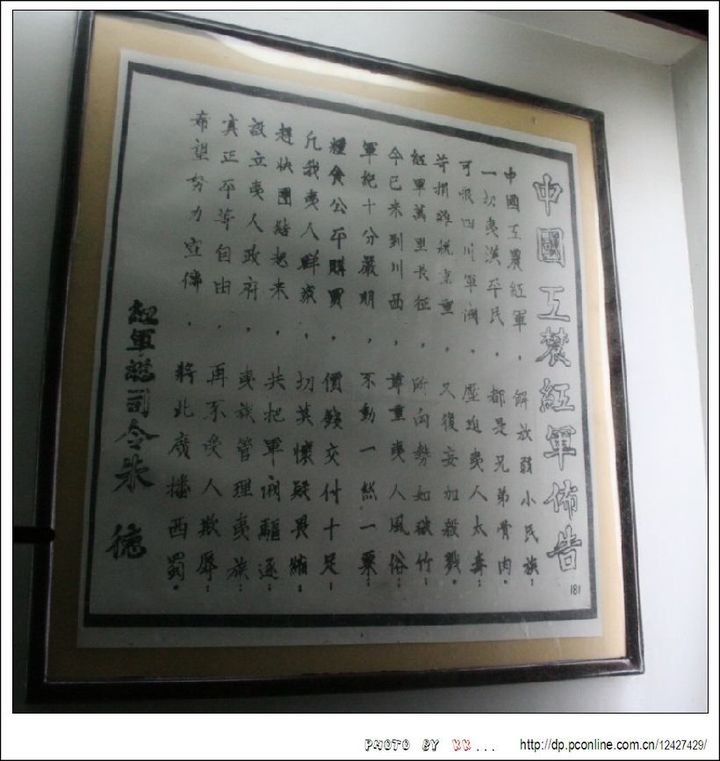 中國工農紅軍佈告
中國工農紅軍，解放弱小民族；
一切夷漢平民，都是兄弟骨肉。
可恨四川軍閥，壓迫夷人太毒；
苛捐雜稅重重，又復妄加殺戮。
紅軍萬里長征，所向勢如破竹；
今已來到川西，尊重夷人風俗。
軍紀十分嚴明，不動一絲一粟；
糧食公平購買，價錢交付十足。
凡我夷人群衆，切莫懷疑畏縮；
趕快團結起來，共把軍閥驅逐。
設立夷人政府，夷族管理夷族；
真正平等自由，再不受人欺辱。
希望努力宣傳，將此廣播西蜀。
紅軍總司令朱德
181
PHOTO BY KK...
http://dp.pconline.com.cn/12427429/